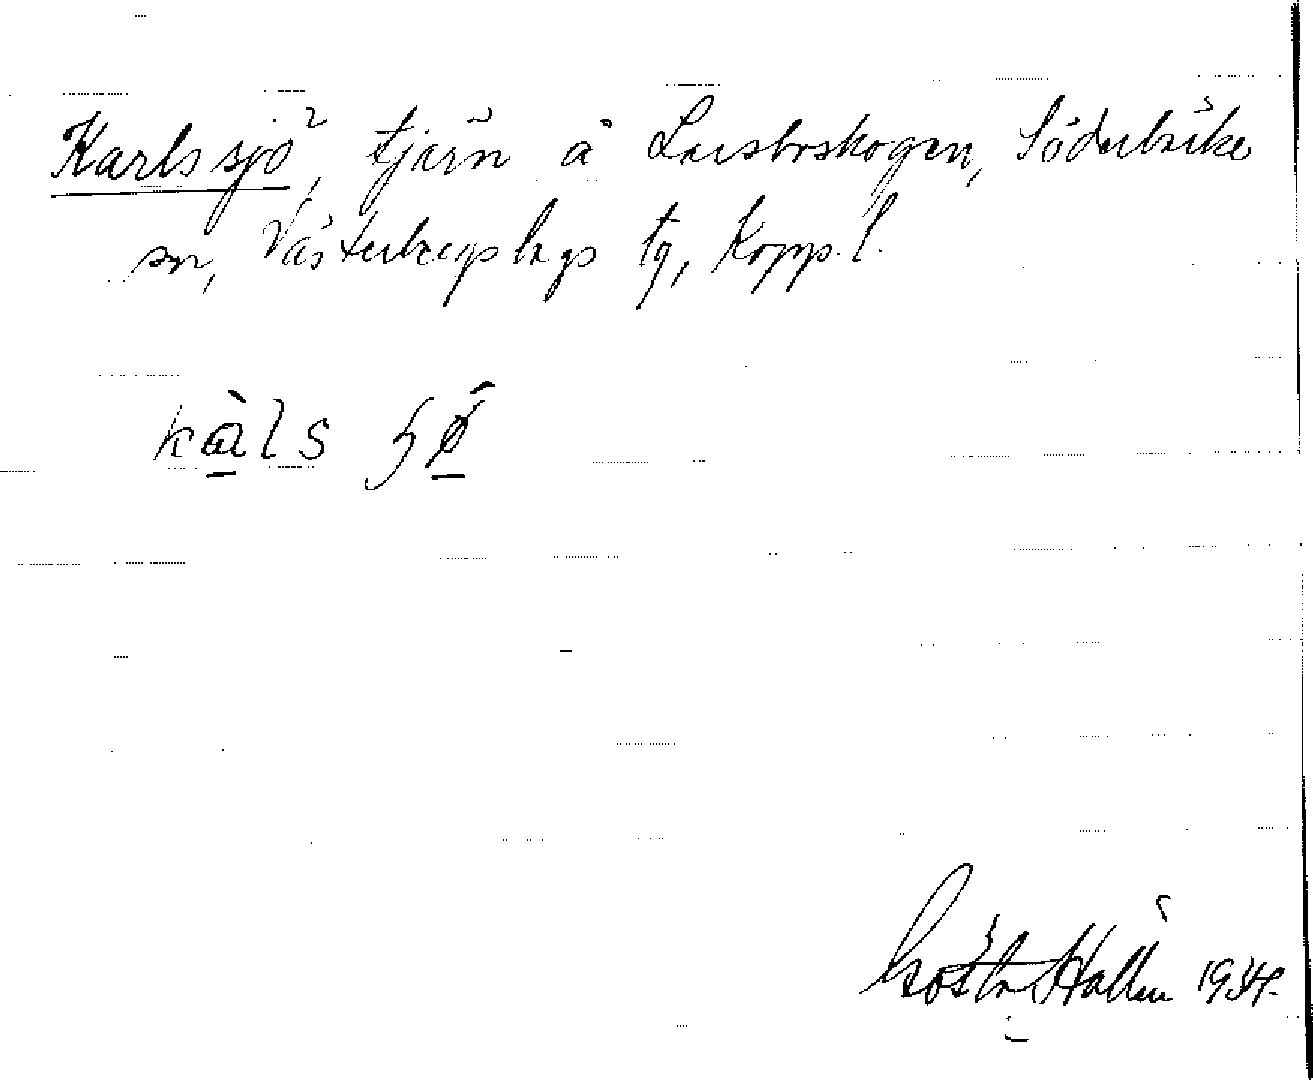 Karlssjö, tjärn å Larsboskogen, Söderbärke
sn, Västerbergslags tg, Kopp. l.
kàls
Gösta Hallén 1934.